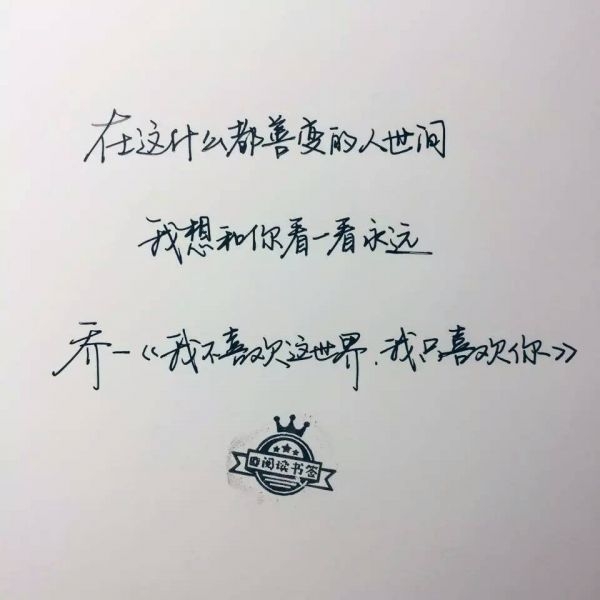 在这什么都善变的人世间
我想和你看一看永远
乔一《我不喜欢这世界,我只喜欢你》
@阅读书签